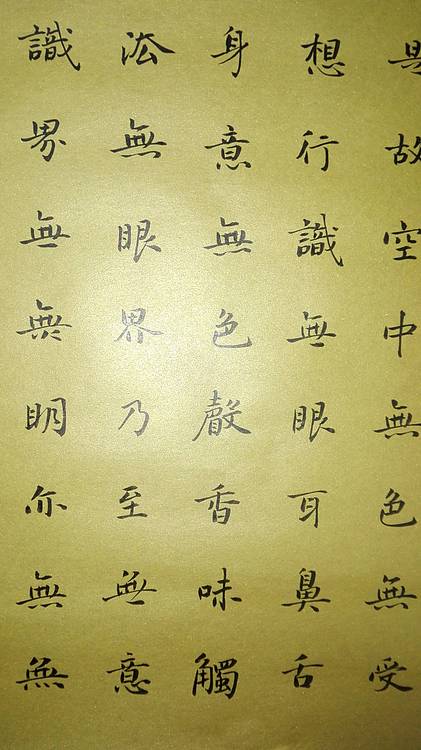 是故空中無色無受
想行識無眼耳鼻舌
身意無色聲香味觸
法無眼界乃至無意
識界無無明亦無無